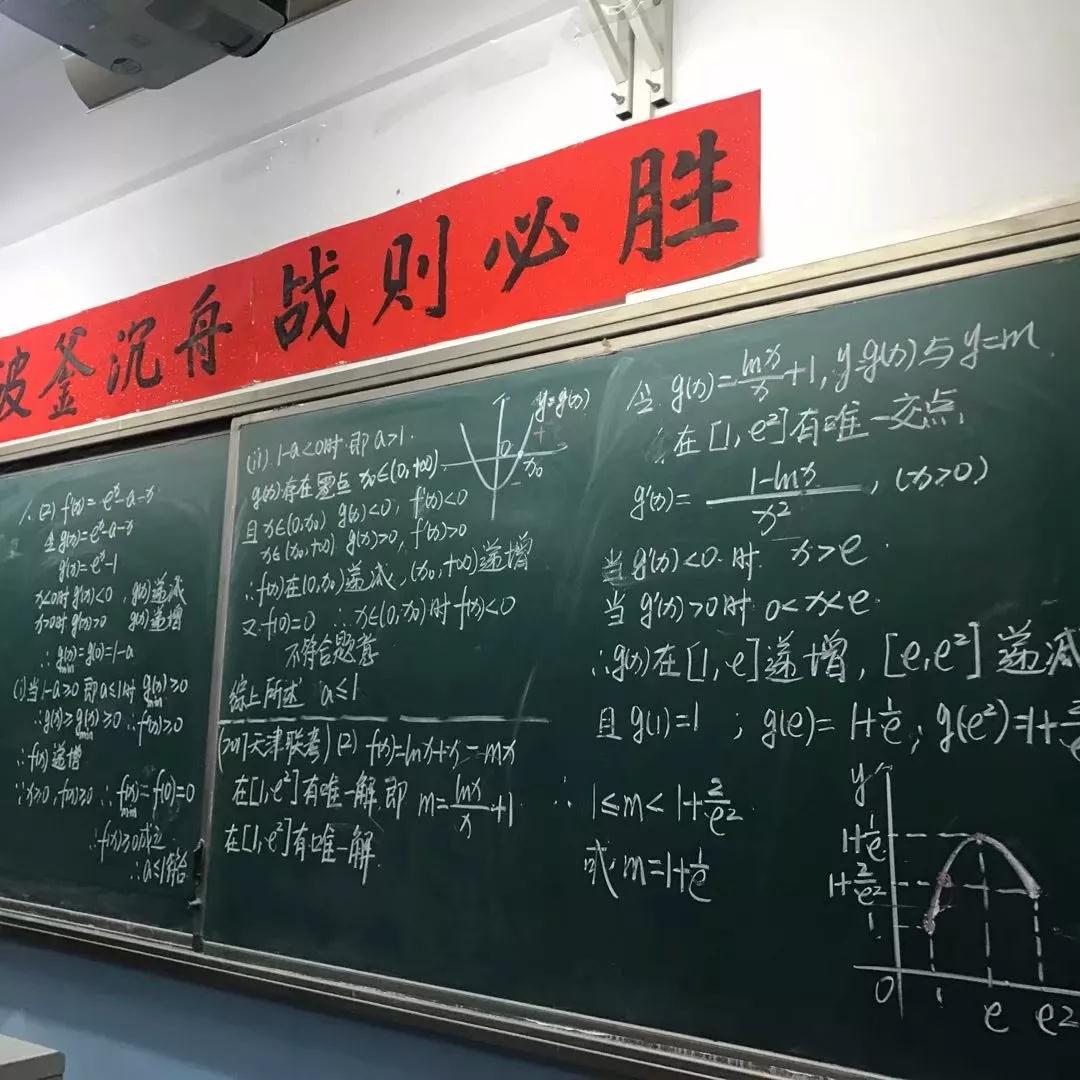 破釜沉舟 战则必胜
1.(2) f'(x)=e^x-a-x
令 g(x)=e^x-a-x
g'(x)=e^x-1
x<0时 g'(x)<0, g(x)递减
x>0时 g'(x)>0 g(x)递增
∴g(x)min=g(0)=1-a
(i)当1-a≥0 即a≤1时 g(x)min≥0
∴g(x)≥g(x)min≥0 ∴f'(x)≥0
∴f(x)递增
∵x≥0, f(x)≥0 ∴f(x)min=f(0)=0
∴f(x)≥0成立
∴a≤1符合
(ii). 1-a<0时 即a>1.
g(x)存在零点 x₀∈(0,+∞)
且 x∈(0,x₀) g(x)<0, f'(x)<0
x∈(x₀,+∞) g(x)>0, f'(x)>0
∴f(x)在(0,x₀)递减,(x₀,+∞)递增
又f(0)=0 ∴x∈(0,x₀)时f(x)<0
不符合题意
综上所述 a≤1
y=g(x)
0
x₀
+
-
(2017天津联考)(2) f(x)=lnx+x=mx
在[1,e²]有唯一解 即 m=lnx/x+1
在[1,e²]有唯一解.
令 g(x)=lnx/x+1, y=g(x)与y=m
在[1,e²]有唯一交点,
g'(x)=(1-lnx)/x², (x>0)
当g'(x)<0时 x>e.
当g'(x)>0时 0<x<e.
∴g(x)在[1,e]递增,[e,e²]递减
且g(1)=1; g(e)=1+1/e; g(e²)=1+2/e
∴1≤m<1+2/e²
或m=1+1/e
y
1+1/e
1+2/e²
1
0 1 e e2